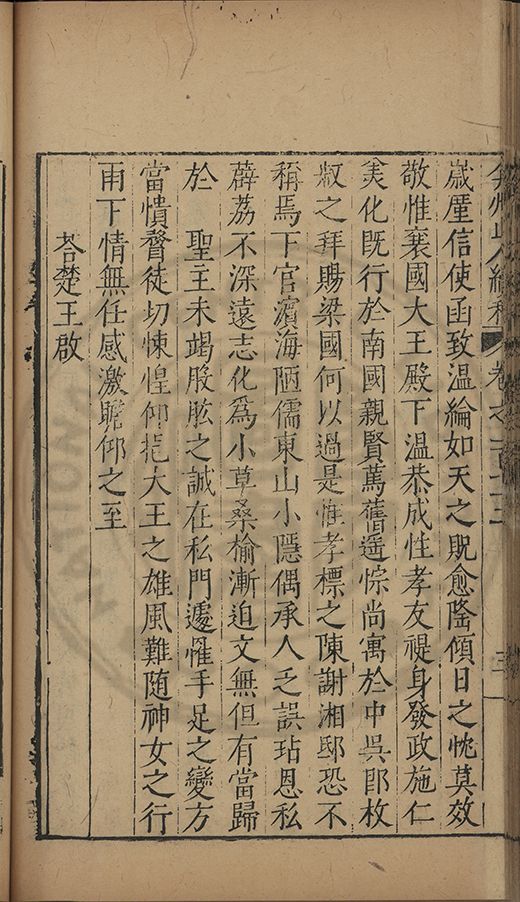 弇州山人續稿 卷之一百七十三 三
嵗厪信使函致温綸如天之貺愈隆傾日之忱莫效
敬惟襄國大王殿下温恭成性孝友禔身發政施仁
美化既行於南國親賢篤舊遥悰尚寓於中吳郎枚
叔之拜賜梁國何以過是惟孝標之陳謝湘邸恐不
稱焉下官濱海陋儒東山小隱偶承人乏誤玷恩私
薜荔不深遠志化爲小草桑榆漸迫文無但有當歸
於　聖主未竭股肱之誠在私門遽罹手足之變方
當憒瞀徒切悚惶仰挹大王之雄風難随神女之行
雨下情無任感激瞻仰之至
荅楚王啟